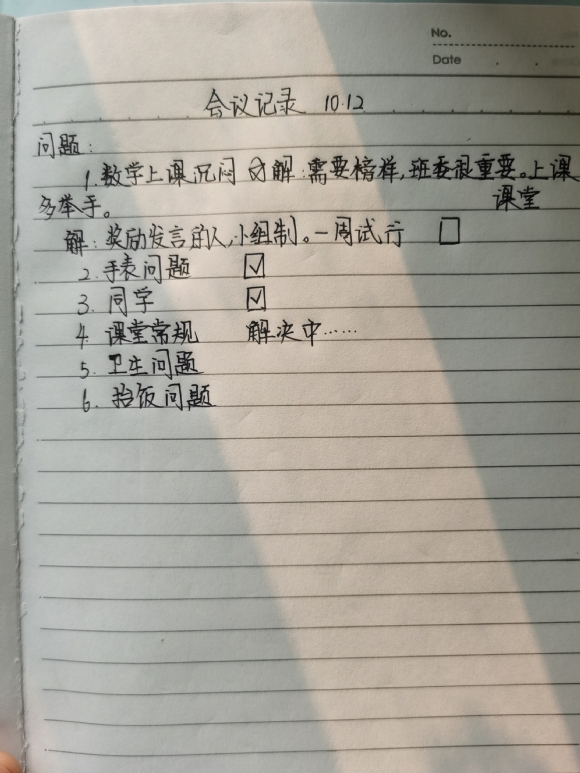 No.
Date
会议记录 10.12
问题：
1. 数学上课沉闷 ☑ 解：需要榜样，班委很重要。上课
课堂
多举手。
解：奖励发言的人，小组制。一周试行 □
2. 手表问题 ☑
3. 同学 ☑
4. 课堂常规 解决中……
5. 卫生问题
6. 抬饭问题